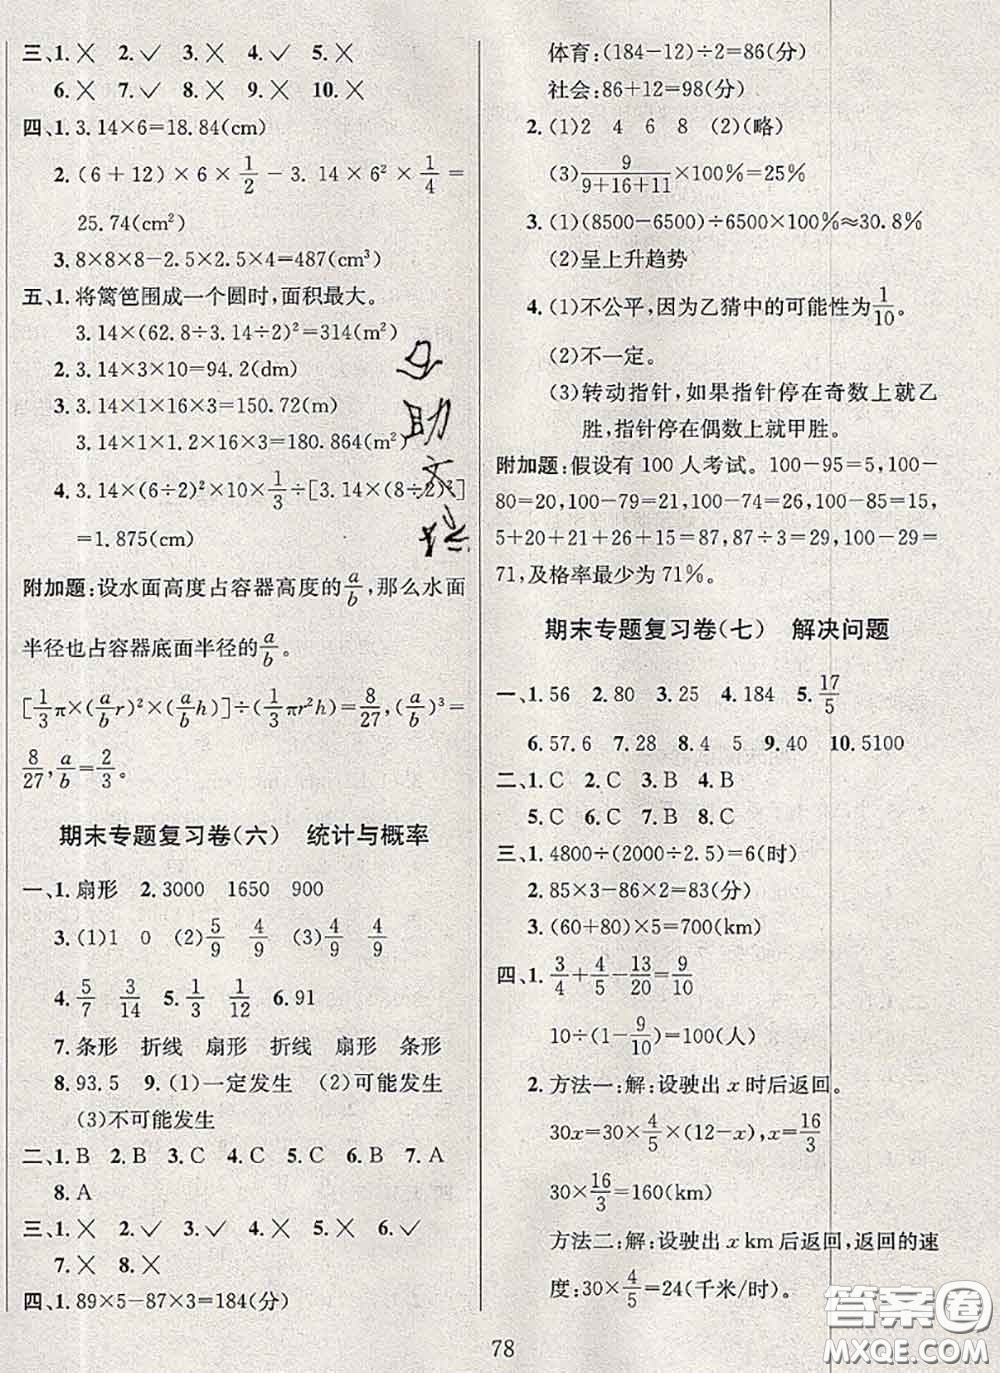 三、1.╳ 2.✓ 3.╳ 4.✓ 5.╳
6.╳ 7.✓ 8.╳ 9.╳ 10.╳
四、1. 3.14×6=18.84(cm)
2. (6+12)×6×1/2-3.14×6²×1/4=
25.74(cm²)
3. 8×8×8-2.5×2.5×4=487(cm³)
五、1. 将篱笆围成一个圆时,面积最大。
3.14×(62.8÷3.14÷2)²=314(m²)
2. 3.14×3×10=94.2(dm)
3. 3.14×1×16×3=150.72(m)
3.14×1×1.2×16×3=180.864(m²)
4. 3.14×(6÷2)²×10×1/3÷[3.14×(8÷2)²]
=1.875(cm)
附加题:设水面高度占容器高度的a/b,那么水面
半径也占容器底面半径的a/b。
[1/3π×(a/b r)²×(a/b h)]÷(1/3πr²h)=8/27,(a/b)³=
8/27,a/b=2/3。
期末专题复习卷(六) 统计与概率
一、1. 扇形 2. 3000 1650 900
3. (1)1 0 (2)5/9 4/9 (3)4/9 4/9
4. 5/7 3/14 5. 1/3 1/12 6. 91
7. 条形 折线 扇形 折线 扇形 条形
8. 93.5 9. (1)一定发生 (2)可能发生
(3)不可能发生
二、1. B 2. B 3. C 4. C 5. B 6. B 7. A
8. A
三、1.╳ 2.✓ 3.✓ 4.╳ 5.╳ 6.✓
7.╳ 8.╳
四、1. 89×5-87×3=184(分)
体育:(184-12)÷2=86(分)
社会:86+12=98(分)
2. (1)2 4 6 8 (2)(略)
(3)9/(9+16+11)×100%=25%
3. (1)(8500-6500)÷6500×100%≈30.8%
(2)呈上升趋势
4. (1)不公平,因为乙猜中的可能性为1/10。
(2)不一定。
(3)转动指针,如果指针停在奇数上就乙
胜,指针停在偶数上就甲胜。
附加题:假设有100人考试。100-95=5,100-
80=20,100-79=21,100-74=26,100-85=15,
5+20+21+26+15=87,87÷3=29,100-29=
71,及格率最少为71%。
期末专题复习卷(七) 解决问题
一、1. 56 2. 80 3. 25 4. 184 5. 17/5
6. 57.6 7. 28 8. 4 5 9. 40 10. 5100
二、1. C 2. C 3. B 4. B
5. C 6. C 7. B 8. C
三、1. 4800÷(2000÷2.5)=6(时)
2. 85×3-86×2=83(分)
3. (60+80)×5=700(km)
四、1. 3/4+4/5-13/20=9/10
10÷(1-9/10)=100(人)
2. 方法一:解:设驶出x时后返回。
30x=30×4/5×(12-x),x=16/3
30×16/3=160(km)
方法二:解:设驶出x km后返回,返回的速
度:30×4/5=24(千米/时)。
78
答案圈
MXQE.COM